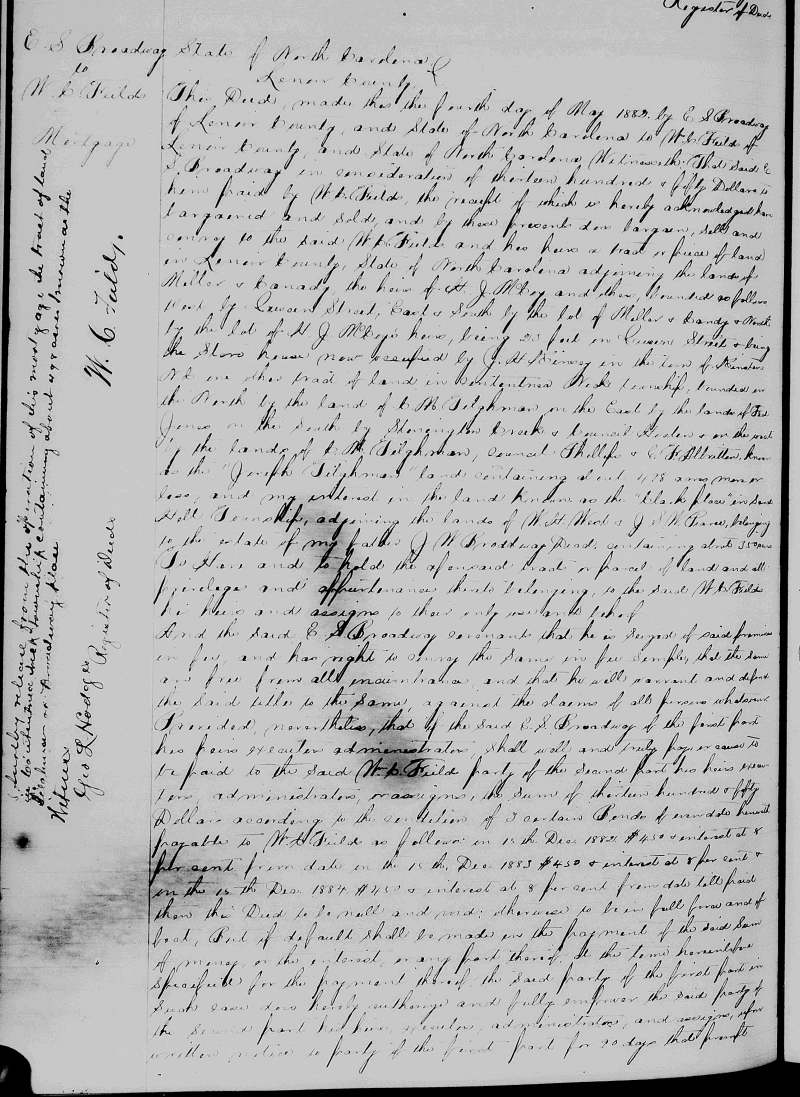 Register of Deeds
E S Broadway
to
W. C. Fields
Mortgage
State of North Carolina
Lenoir County
This Deed, made this the fourth day of May 1882 by E S Broadway
of Lenoir County, and State of North Carolina to W. C. Field of
Lenoir County, and State of North Carolina, Witnesseth: That said E
S. Broadway in consideration of thirteen hundred & fifty Dollars to
him paid by W. C. Fields, the receipt of which is hereby acknowledged have
bargained and sold, and by these presents does bargain, sell and
convey to the said W. C. Fields and his heirs a tract or piece of land
in Lenoir County, State of North Carolina adjoining the lands of
Miller & Canady, the heirs of H. J. McCoy and others, bounded as follows
West by Queen Street, East & South by the lot of Miller & Candy & North
by the lot of H J McCoy's heirs, being 25 feet on Queen Street & being
the Store house now occupied by J. H. in the town of Kinston
one other tract of land in Contentnea Neck township, bounded on
the North by the land of C M Tilghman, on the East by the lands of
Jones on the South by Creek & Council & on the west
by the lands of C. M. Tilghman, Council Phillips & C F Albritton, known
as the "Joseph Tilghman" land containing about 428 acres more or
less, and my interest in the land known as the "black place" in Said
Township, adjoining the lands of W. H. West & J. W. belonging
to the estate of my father J W Broadway Dead. containing about 350 acres
To Have and to hold the aforesaid tract or parcel of land and all
privilege and appurtenances thereto belonging, to the said W. C. Fields
his heirs and assigns to their only use and behoof
And the said E S Broadway covenants that he is seized of said premises
in fee, and has right to convey the same in fee simple, that the same
are free from all incumbrance, and that he will warrant and defend
the said title to the same, against the claims of all persons whatsoever
Provided, nevertheless, that if the said E. S. Broadway of the first part
his heirs executors administrators, shall well and truly pay or cause to
be paid to the said W. C. Field party of the second part his heirs execu
tors, administrators, or assigns, the sum of thirteen hundred & fifty
Dollars according to the condition of 3 certain Bonds of even date herewith
payable to W C Field as follows: on 15 th Dec. 1882 $450 & interest at 8
per cent from date on the 15 th Dec 1883 $450 & interest at 8 per cent &
on the 15 th Dec. 1884 $450 & interest at 8 per cent from date till paid
then this Deed to be null and void; otherwise to be in full force and ef
fect, But if default shall be made in the payment of the said Sum
of money, or the interest, or any part thereof, at the time hereinbefore
specified for the payment thereof the said party of the first part in
such case does hereby authorize and fully empower the said party of
the second part his heirs, executors, administrators, and assigns, after
written notice to party of the first part for 20 days that prompt
I hereby release from the operation of this mortgage the tract of land
in Contentnea Neck township containing about 428 acres known as the
Tilghman or Broadway place
W. C. Fields.
Witness
Geo L Hodges Register of Deeds